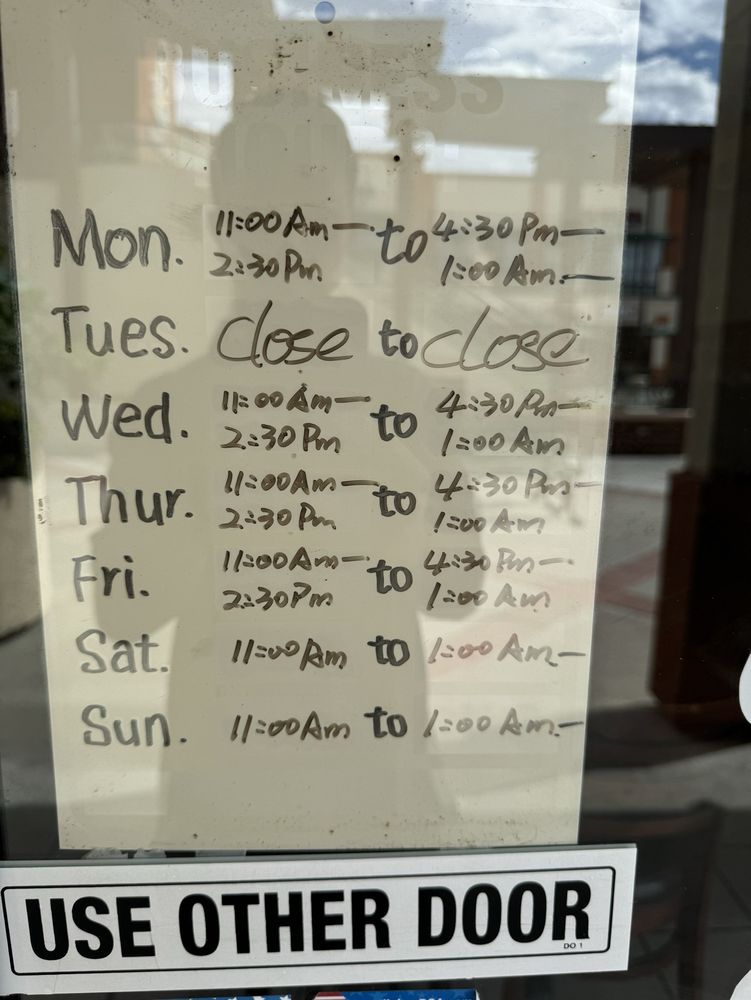 BUSINESS
HOURS
Mon. 11:00 Am — to 4:30 Pm —
2:30 Pm 1:00 Am. —
Tues. Close to close
Wed. 11:00 Am — to 4:30 Pm —
2:30 Pm 1:00 Am
Thur. 11:00 Am — to 4:30 Pm —
2:30 Pm 1:00 Am
Fri. 11:00 Am — to 4:30 Pm —
2:30 Pm 1:00 Am
Sat. 11:00 Am to 1:00 Am —
Sun. 11:00 Am to 1:00 Am. —
USE OTHER DOOR
DO 1